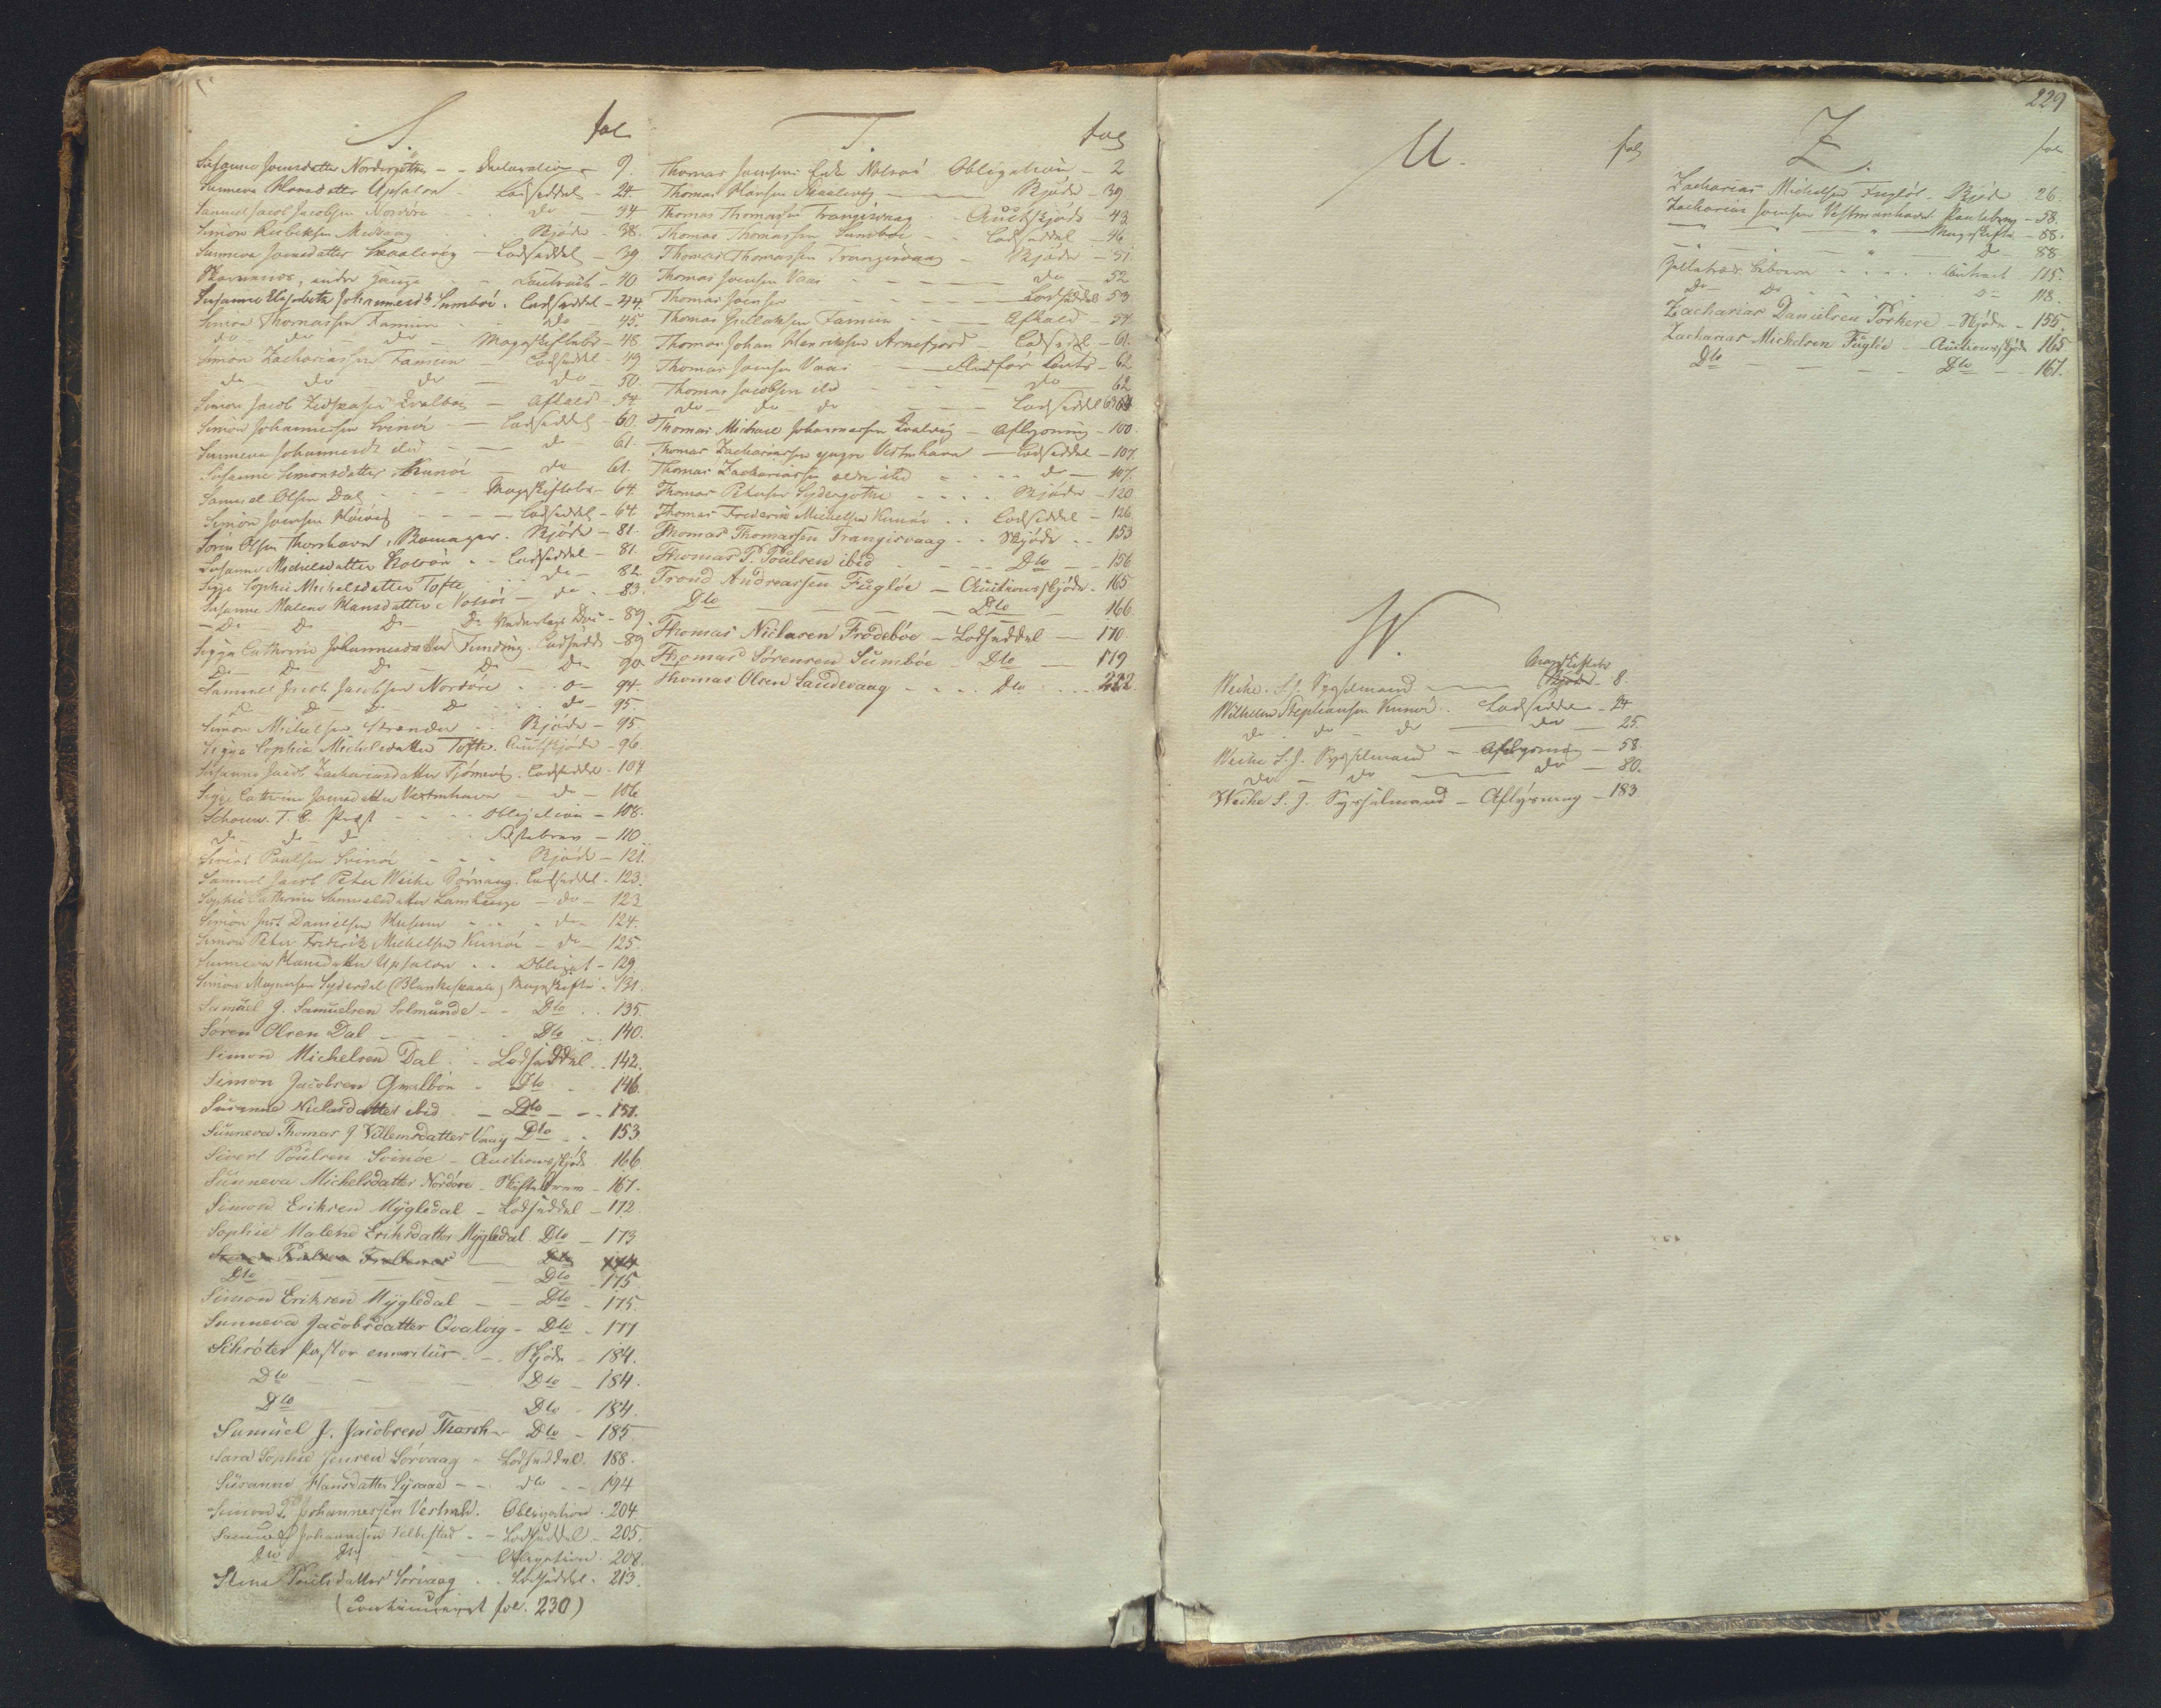 S. fol
Susanne Joensdatter Nordregøthe - - Declaration - 9.
Sunneva Hansdatter Upsalon - Lodseddel - 24.
Samuel Jacob Jacobsen Nordøre - do - 34
Simon Midvaag - Skjøde - 38.
Sunneva Joensdatter Skaalevig - Lodseddel - 39
andre - Contract - 40
Susanne Elisabeth Johannesd. Sumbøe . Lodseddel - 44.
Simon Thomassen Famien - do 45.
do - do - do - Mageskiftebr - 48
Simon Zachariassen Famien - Lodseddel - 49
do do do - do - 50.
Simon Jacob Qvalbøe - Afkald - 54
Simon Johannessen Svinøe - Lodseddel - 60.
Sunneva Johannesdr do - - do - 61.
Susanne Simonsdatter Kunøe - do - 61.
Samuel Olsen Dal - - - Mageskiftebr - 64.
Simon Joensen - - - Lodseddel - 64.
Sørin Olsen Thorshavn, . Skjøde - 81.
Susanne Michelsdatter - - Lodseddel - 81.
Sigge Sophie Michelsdatter Tofte - do - 82
Susanne Malene Hansdatter - do - 83.
- Do Do Do - Do - 89.
Sigga Cathrine Johannesdatter Funding. Lodsedd - 89
Do - Do - Do - Do - Do - 90
Samuel Jacob Jacobsen Nordøre . . o- 94.
Do Do - Do - Do . . do - 95.
Simon Michelsen Strender - Skjøde - 95
Sigga Sophia Michelsdatter Tofte. Auctskjøde - 96.
Susanne Jacob Zachariasdatter . Lodseddel. 104
Sigge Cathrine Joensdatter Vestmhavn - do - 106
Schouw. T. E. - - - Obligation - 108.
do - do - do - - Festebrev - 110
Sivert Poulsen Svinøe - - - Skjøde - 121.
Samuel Jacob Peter Weihe . Lodseddel - 123.
Sophie Cathrine Samuelsdatter - do - 123
Simon Just Danielsen Husum - - do - 124.
Simon Peter Frederik Michelsen Kunøe - do - 125.
Sunneva Hansdatter Upsalon - - Obligat - 129
Simon Magnusen Syderdal (Blankeskaale) Mageskifte - 131.
Samuel J. Samuelsen Solmunde - - Dto . . 135.
Søren Olsen Dal - - - Dto . . 140.
Simon Michelsen Dal . . Lodseddel . 142.
Simon Jacobsen Qvalbøe - Dto . . 146.
Susanne Niclasdatter ibid . - Dto - - 151.
Sunneva Thomas J Villemsdatter Vaag Dto - . 153
Sivert Poulsen Svinøe - Auctionsskjøde. 166
Sunneva Michelsdatter Nordøre - Skiftebrev - 167.
Simon Eriksen Mygledal - Lodseddel - 172.
Sophie Malene Eriksdatter Mygledal. Dto - 173
Dto 174
Dto - - - Dto - 175
Simon Eriksen Mygledal - - Dto - 175.
Sunneva Jacobsdatter Qvalvig - Dto - 177
Schrøter Pastor emeritus . - . Skjøde - 184.
Dto - - - Dto - 184.
Dto - - - Dto - 184.
Samuel J. Jacobsen Thorsh - Dto - 185
Sara Sophie Jensen Sørvaag - Lodseddel. 188.
Susanne Hansdatter - - dto - - 194
Simon P. Johannessen Vestmh. Obligation . 204
Samuel Johannesen Velbestad . - Lodseddel - 205.
Dto Dto - - Obligation . 208.
Stina Poulsdatter Sørvaag . . Lodseddel. 213.
(continueret fol. 230)
T. fol
Thomas Joensens Enke Nolsøe Obligation - 2
Thomas Hansen Skaalevig - - Skjøde - 39
Thomas Thomassen Trangisvaag - Auctskjøde - 43
Thomas Thomassen Sumbøe - - Lodseddel - 46
Thomas Thomassen Trangisvaag - Skjøde - 51.
Thomas Joensen Vaai - - - do - 52
Thomas Joensen - - - Lodseddel 53
Thomas Famien - - - Afkald - 54.
Thomas Johan Henriksen Arnefjord - Lodseddel - 61.
Thomas Joensen Vaai - - - 62
Thomas Jacobsen do - - - do - 62
do - do - do - - - Lodseddel 63
Thomas Michael Johannessen Qvalvig - Aflysning - 100.
Thomas Zachariassen yngre Vestmhavn - Lodseddel - 107.
Thomas Zachariassen ældre ibid - - - do - 107.
Thomas Petersen Sydergøthe - - - - Skjøde - 120
Thomas Frederik Michelsen Kunøe . . Lodseddel - 126.
Thomas Thomassen Trangisvaag . . Skjøde . . 153
Thomas P. Poulsen ibid - - - Dto - - 156
Trond Andreassen Fugløe - Auctionsskjøde. 165
Dto - - - Dto - - 166.
Thomas Niclasen Frodebøe - Lodseddel - 170.
Thomas Sørensen Sumbøe - Dto - 179
Thomas Olsen Sandevaag - - . . Dto . . . 222.
U. fol
W.
Mageskiftebr
Weihe. S.J. Sysselmand - Skjøde - 8.
Wilhelm Stephansen Kunøe . . Lodseddel - 24
do - do - do - do - 25.
Weihe S. J. Sysselmand - Aflysning - 58.
do - do - do - 80.
Weihe S. J. Sysselmand - Aflysning - 183
229
Z. fol
Zacharias Michelsen Fugløe - Skjøde . 26.
Zacharias Joensen Vestmanhavn Pantebrev - 58.
- - - " - Mageskifte - 88.
- " - - - " - Do - 88
- - - - Contract 115.
Do Do - - - o- 118.
Zacharias Danielsen Porkere - Skjøde - 155.
Zacharias Michelsen Fugløe - Auctionsskjøde 165
Dto - - - - Dto - - 167.